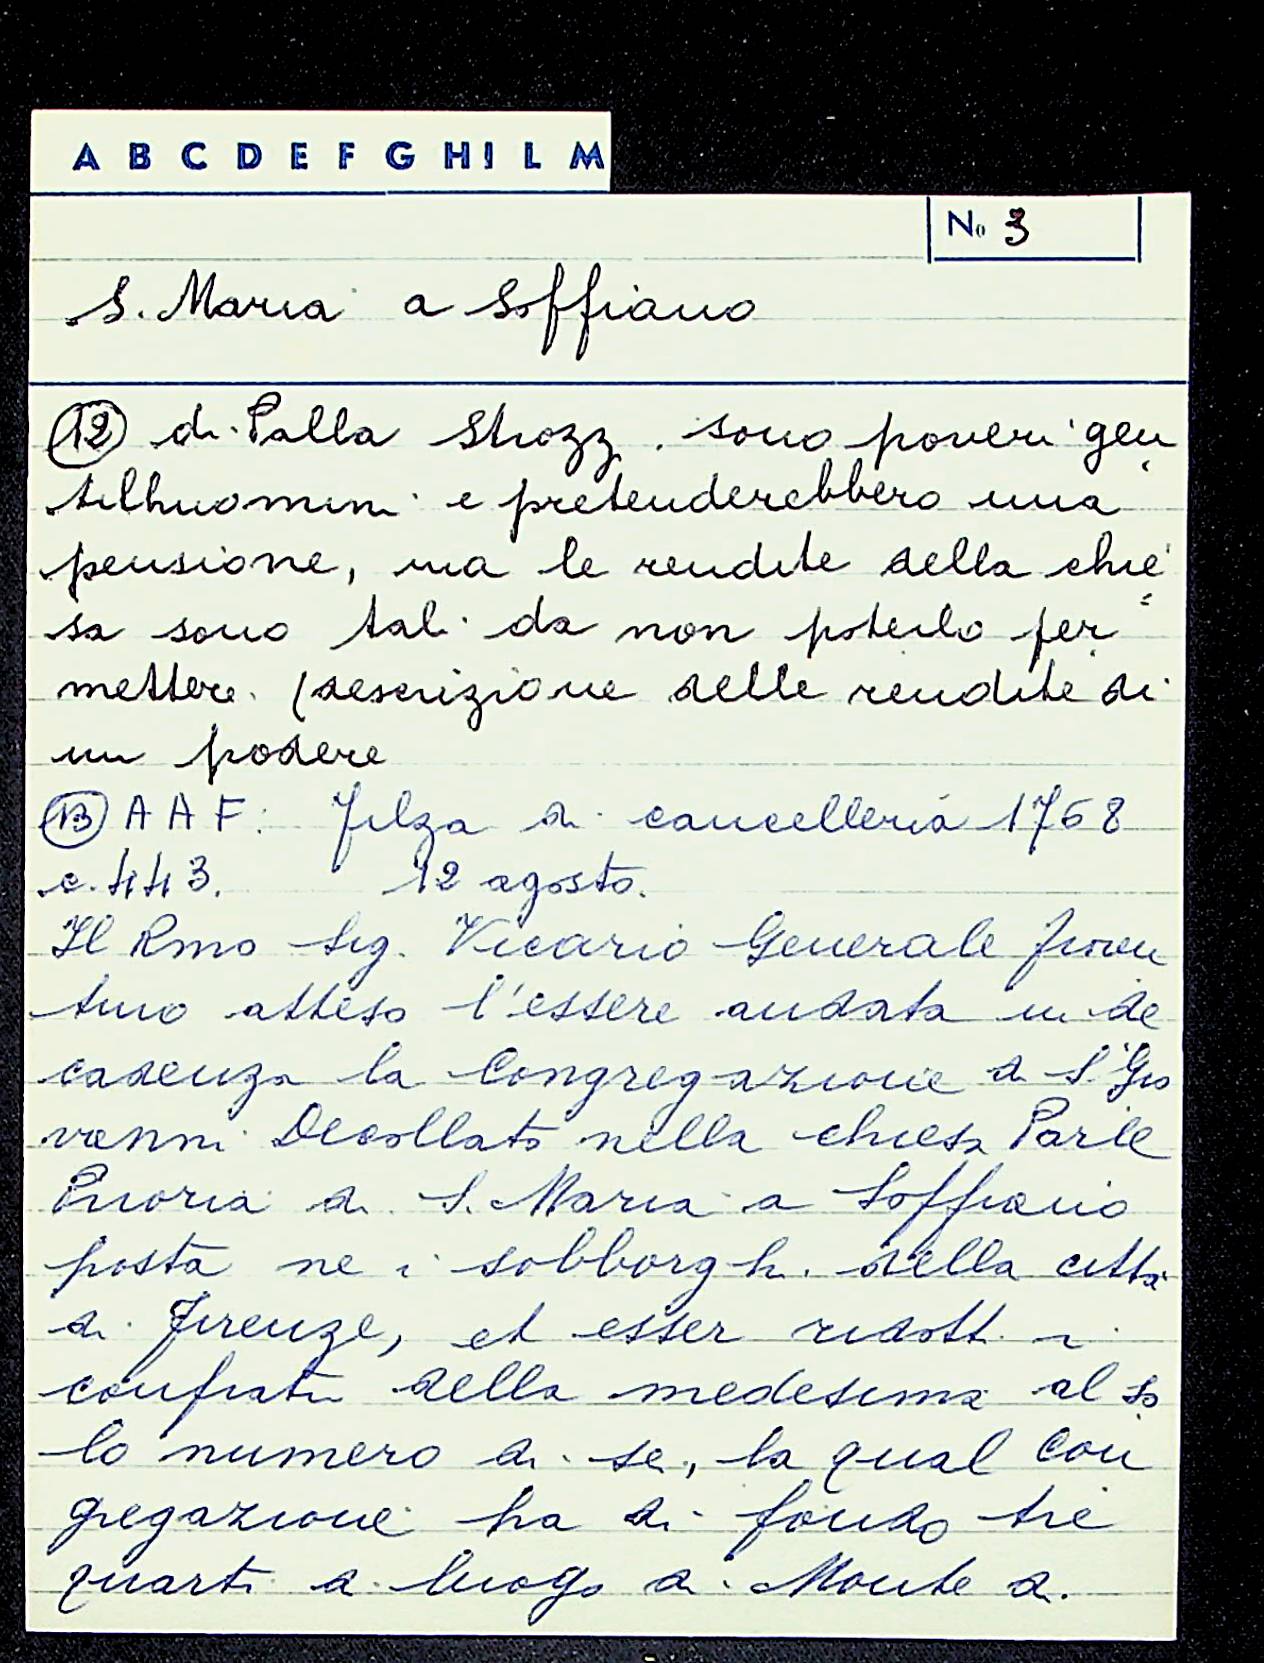 A B C D E F G H I L M
No 3
S. Maria a Soffiano
(12) di Palla Strozzi. sono poveri gen
tilhuomini e pretenderebbero una
pensione, ma le rendite della chie
sa sono tali da non poterlo per
mettere. (descrizione delle rendite di
un podere
(13) A A F: Filza di cancelleria 1768
c. 443. 12 agosto.
Il Rmo Sig. Vicario Generale fioren
tino atteso l'essere andata in de
cadenza la Congregazione di S. Gio
vanni Decollato nella chiesa Parle
Prioria di S. Maria a Soffiano
posta ne i sobborghi della città
di Firenze, et esser ridotti i
confrati della medesima al so
lo numero di sei, la qual con
gregazione ha di fondo tre
quarti di luogo di Monte di.